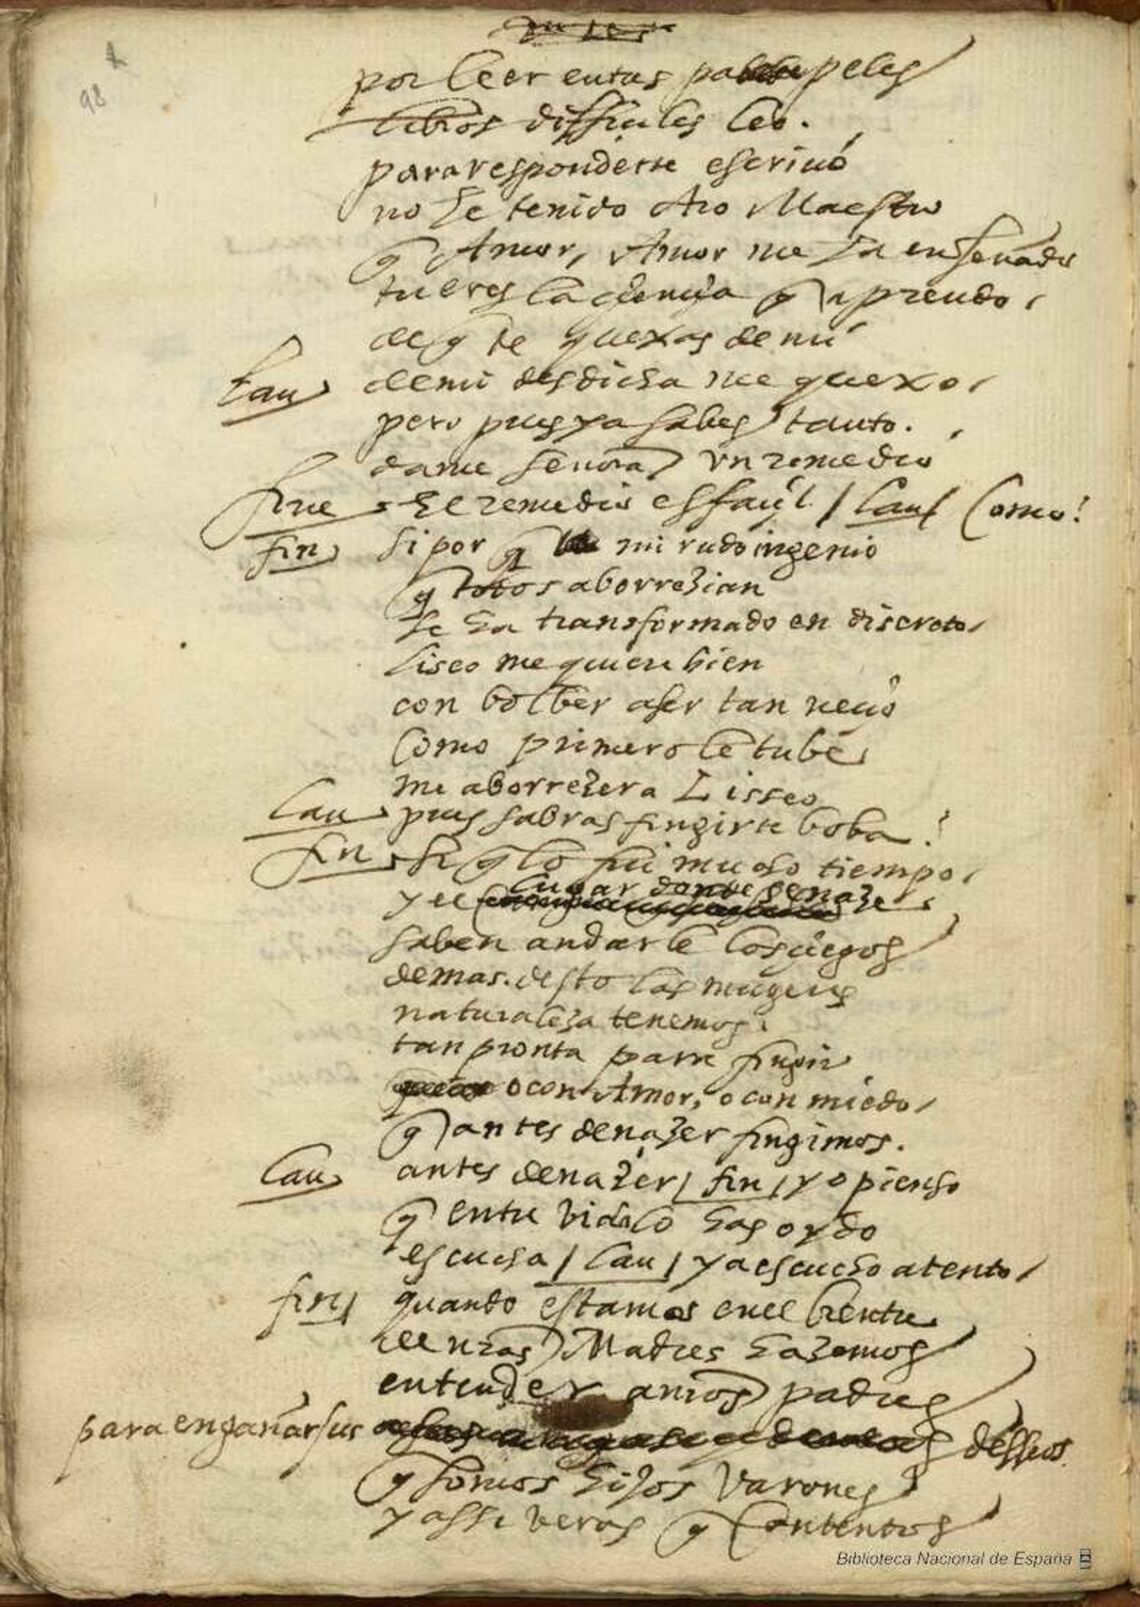 98
por leer en tus papeles
libros difficiles leo.
para responderte escrivo
no he tenido otro Maestro
q Amor, Amor me ha enseñado
tu eres la çiençia q aprendo
de q te quexas de mi
Lau de mi desdicha me quexo
pero pues ya sabes tanto.
dame señora un remedio
fine El remedio es façil / Lau / Como?
fin si por q mi rudo ingenio
q todos aborrezian
se ha transformado en discreto
Liseo me quiere bien
con bolber a ser tan neçio
como primero le tube
me aborrezera Lisseo
Lau pues sabras fingirte boba?
fin si q lo fui mucho tiempo
y el lugar donde se naze
saben andarle los çiegos
demas. desto las mugeres
naturaleza tenemos
tan pronta para fingir
o con Amor, o con miedo
q antes de nazer fingimos.
Lau antes de nazer / fin / yo pienso
q en tu vida lo has oydo
escucha / Lau / ya escucho atento
fin quando estamos en el bientre
de nras Madres hazemos
entender a nros padres
para engañar sus desseos
q somos hijos varones
y assi veras q contentos
Biblioteca Nacional de España